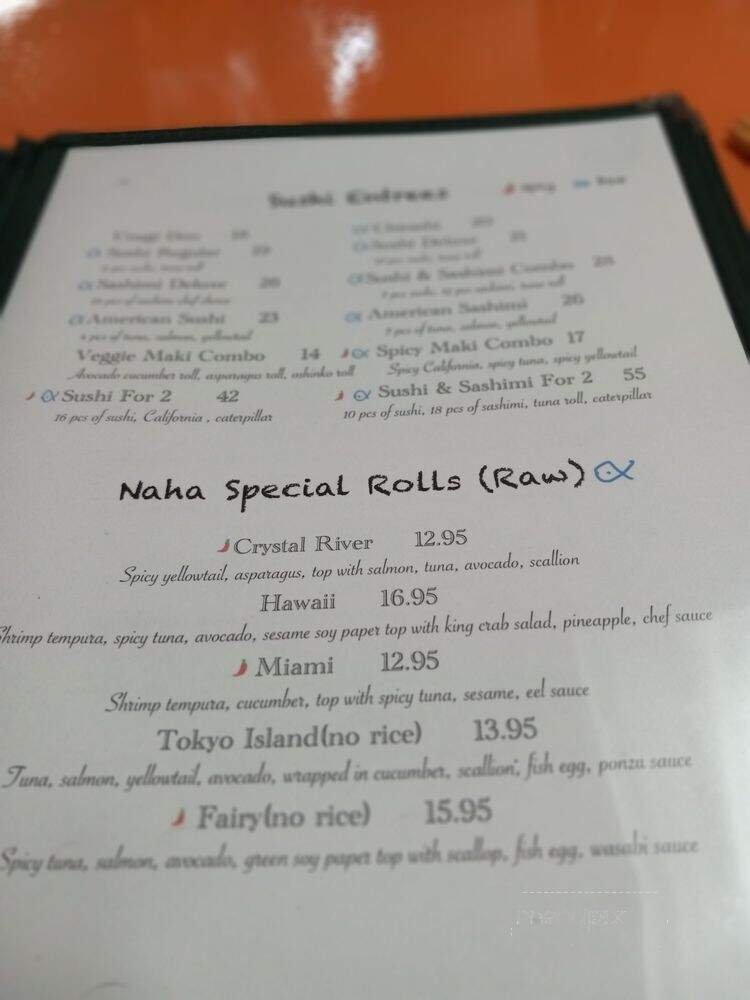 Sushi Entrees
Sushi Regular
Sushi Deluxe
Sashimi Deluxe 26
Sushi & Sashimi Combo 28
American Sushi 23
4 pcs of tuna, salmon, yellowtail
American Sashimi 26
pcs of tuna, salmon, yellowtail
Veggie Maki Combo 14
Avocado cucumber roll, asparagus roll, oshinko roll
Spicy Maki Combo 17
Spicy California, spicy tuna, spicy yellowtail
Sushi For 2 42
16 pcs of sushi, California , caterpillar
Sushi & Sashimi For 2 55
10 pcs of sushi, 18 pcs of sashimi, tuna roll, caterpillar
Naha Special Rolls (Raw)
Crystal River 12.95
Spicy yellowtail, asparagus, top with salmon, tuna, avocado, scallion
Hawaii 16.95
Shrimp tempura, spicy tuna, avocado, sesame soy paper top with king crab salad, pineapple, chef sauce
Miami 12.95
Shrimp tempura, cucumber, top with spicy tuna, sesame, eel sauce
Tokyo Island(no rice) 13.95
Tuna, salmon, yellowtail, avocado, wrapped in cucumber, scallion, fish egg, ponzu sauce
Fairy(no rice) 15.95
Spicy tuna, salmon, avocado, green soy paper top with scallop, fish egg, wasabi sauce